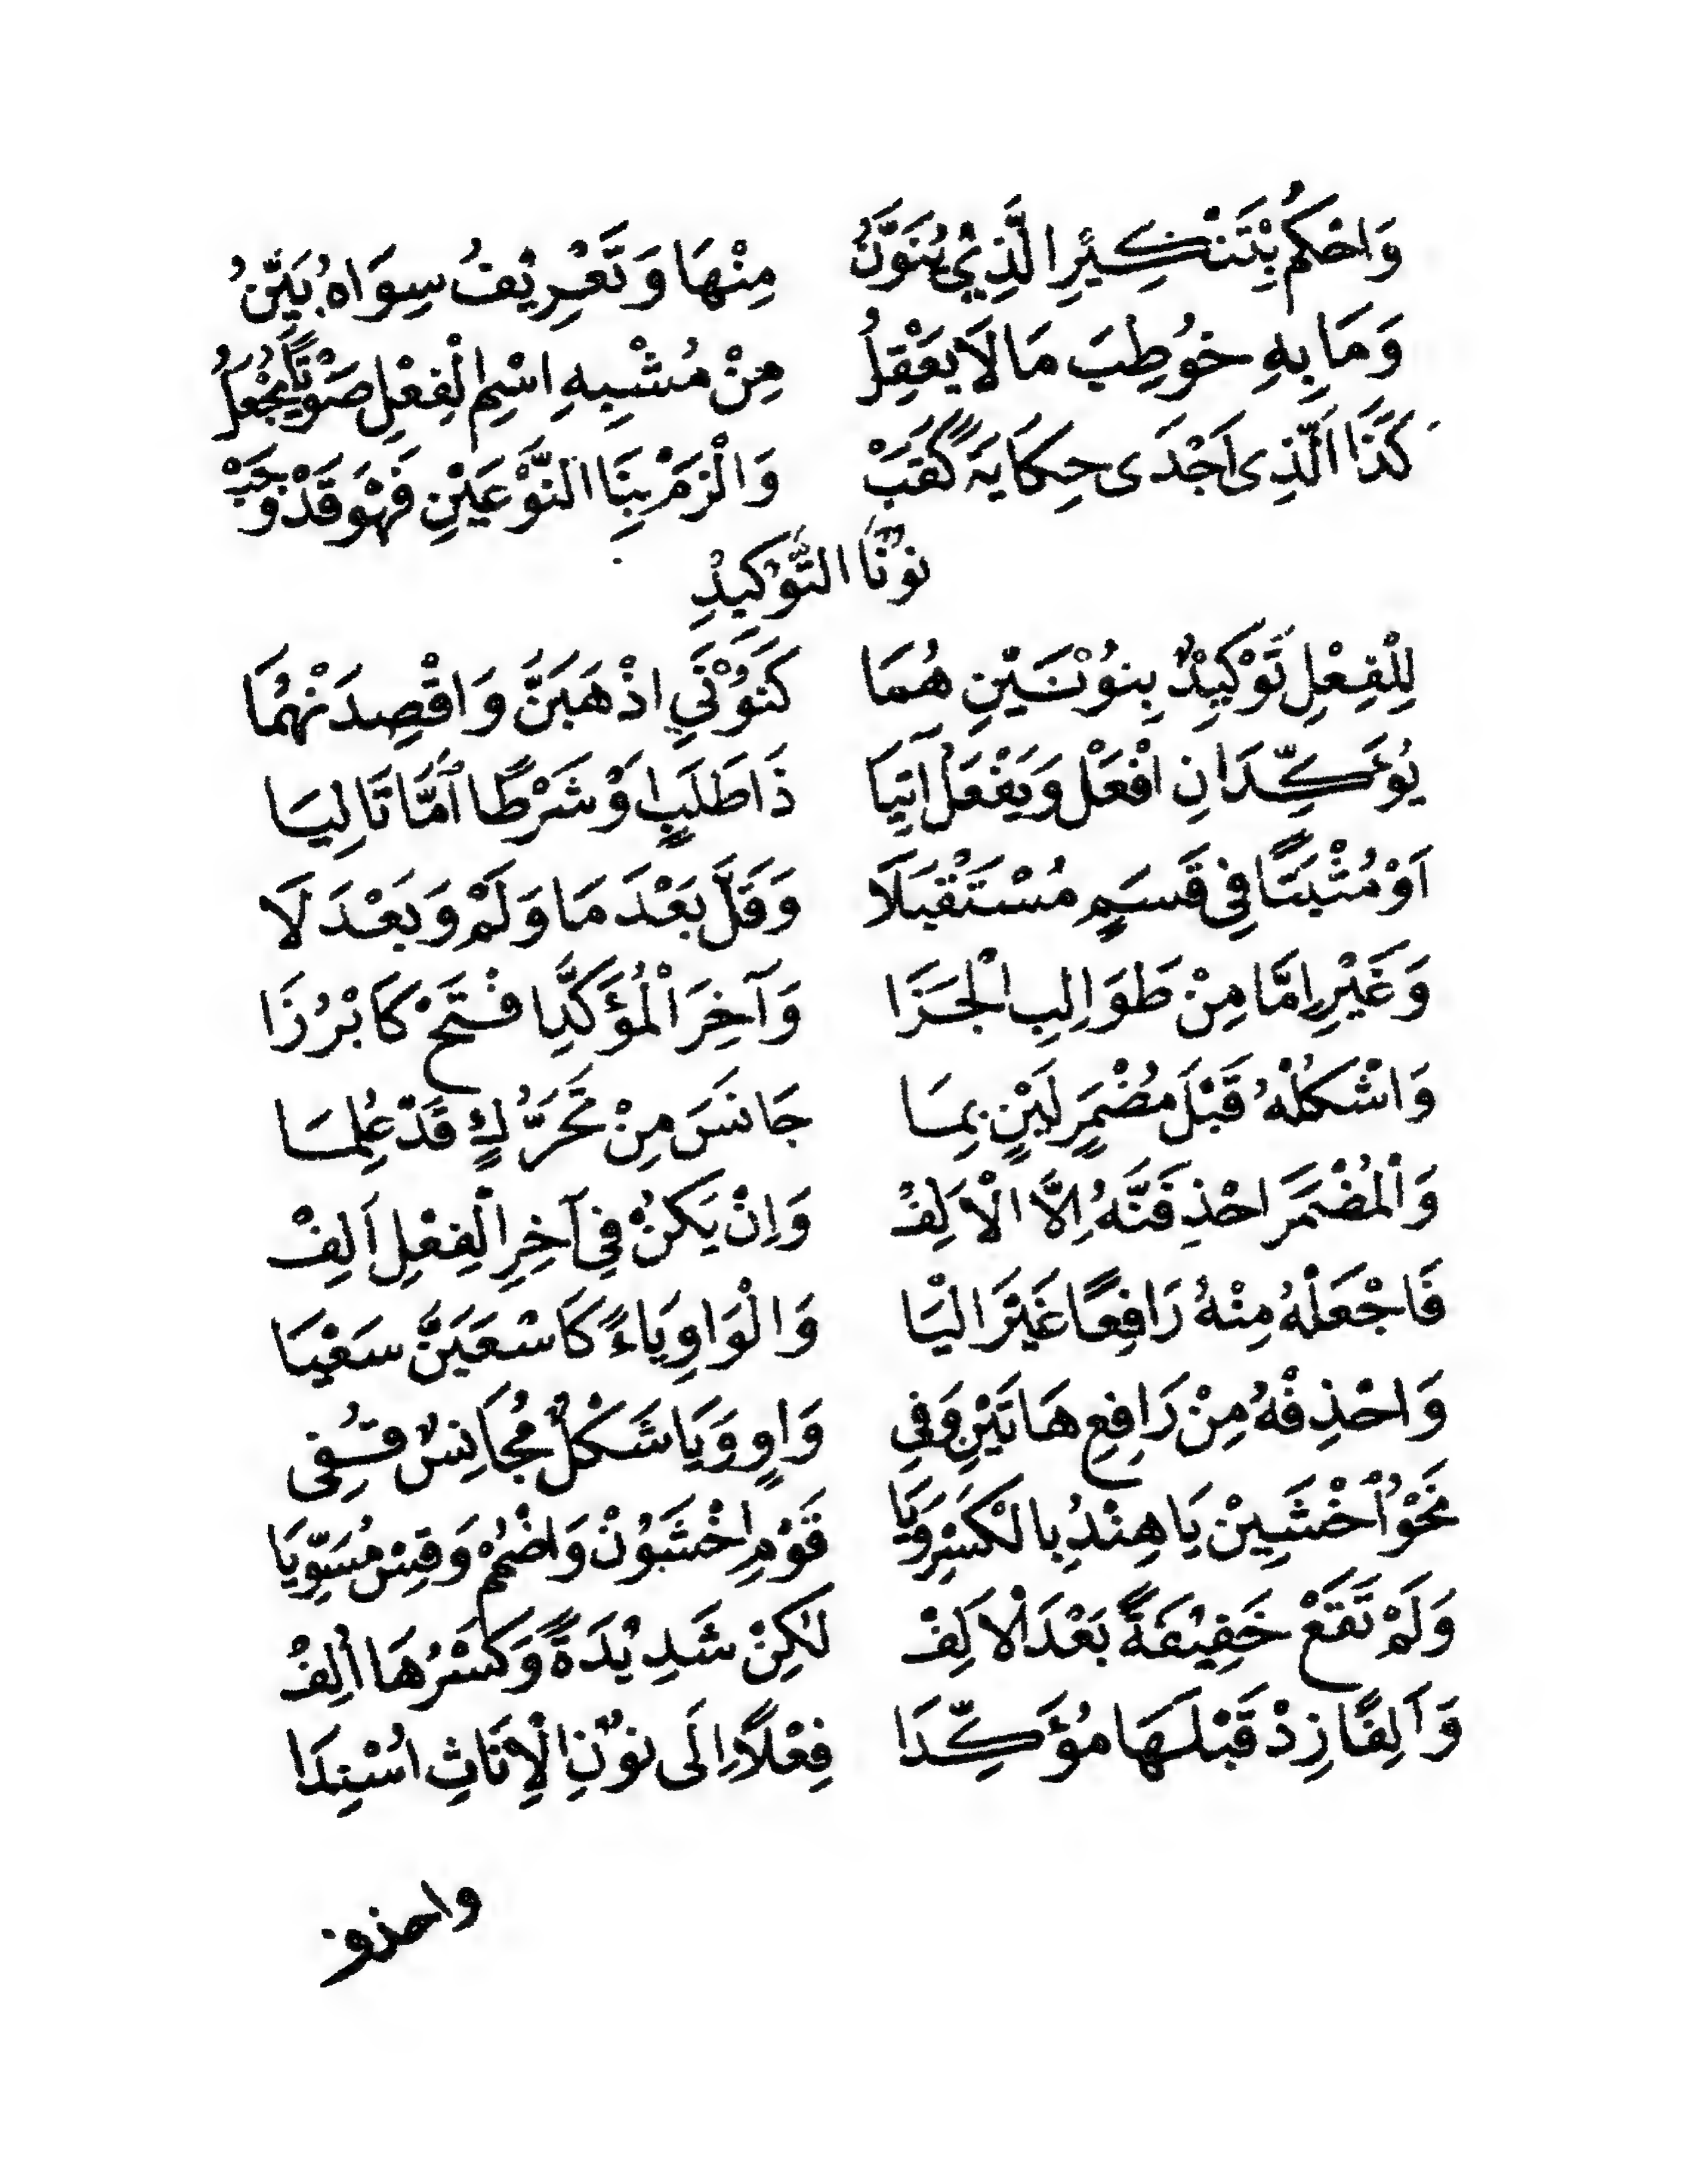 وَاحْكُمْ بِتَنْكِيْرِ الَّذِيْ يُنَوَّنُ مِنْهَا وَتَعْرِيْفُ سِوَاهُ بَيِّنُ
وَمَا بِهِ خُوْطِبَ مَا لَا يَعْقِلُ مِنْ مُشْبِهِ اسْمِ الْفِعْلِ صَوْتًا يُجْعَلُ
كَذَا الَّذِى اَجْدَى حِكَايَةً كَقَبْ وَالْزَمْ بِنَا النَّوْعَيْنِ فَهْوَ قَدْ وَجَبْ
نُوْنَا التَّوْكِيْدِ
لِلْفِعْلِ تَوْكِيْدٌ بِنُوْنَيْنِ هُمَا كَنُوْنَيِ اذْهَبَنَّ وَاقْصِدَنْهُمَا
يُؤَكِّدَانِ افْعَلْ وَيَفْعَلْ آتِيَا ذَا طَلَبٍ اَوْ شَرْطًا اَمَّا تَالِيَا
اَوْ مُثْبَتًا فِى قَسَمٍ مُسْتَقْبَلَا وَقَلَّ بَعْدَ مَا وَلَمْ وَبَعْدَ لَا
وَغَيْرِ اِمَّا مِنْ طَوَالِبِ الْجَزَا وَآخِرَ الْمُؤَكَّدِ افْتَحْ كَابْرُزَا
وَاشْكُلْهُ قَبْلَ مُضْمَرٍ لَيْنٍ بِمَا جَانَسَ مِنْ تَحَرُّكٍ قَدْ عُلِمَا
وَالْمُضْمَرَ احْذِفَنَّهُ اِلَّا الْاَلِفْ وَاِنْ يَكُنْ فِى آخِرِ الْفِعْلِ اَلِفْ
فَاجْعَلْهُ مِنْهُ رَافِعًا غَيْرَ الْيَا وَالْوَاوِ يَاءً كَاسْعَيَنَّ سَعْيَا
وَاحْذِفْهُ مِنْ رَافِعِ هَاتَيْنِ وَفِى وَاوٍ وَيَا شَكْلٌ مُجَانِسٌ قُفِى
نَحْوُ اخْشَيِنْ يَا هِنْدُ بِالْكَسْرِ وَيَا قَوْمِ اخْشَوُنْ وَاضْمُمْ وَقِسْ مُسَوِّيَا
وَلَمْ تَقَعْ خَفِيْفَةً بَعْدَ الْاَلِفْ لٰكِنْ شَدِيْدَةً وَكَسْرُهَا اُلِفْ
وَاَلِفًا زِدْ قَبْلَهَا مُؤَكِّدَا فِعْلًا اِلَى نُوْنِ الْاِنَاثِ اُسْنِدَا
واحذف